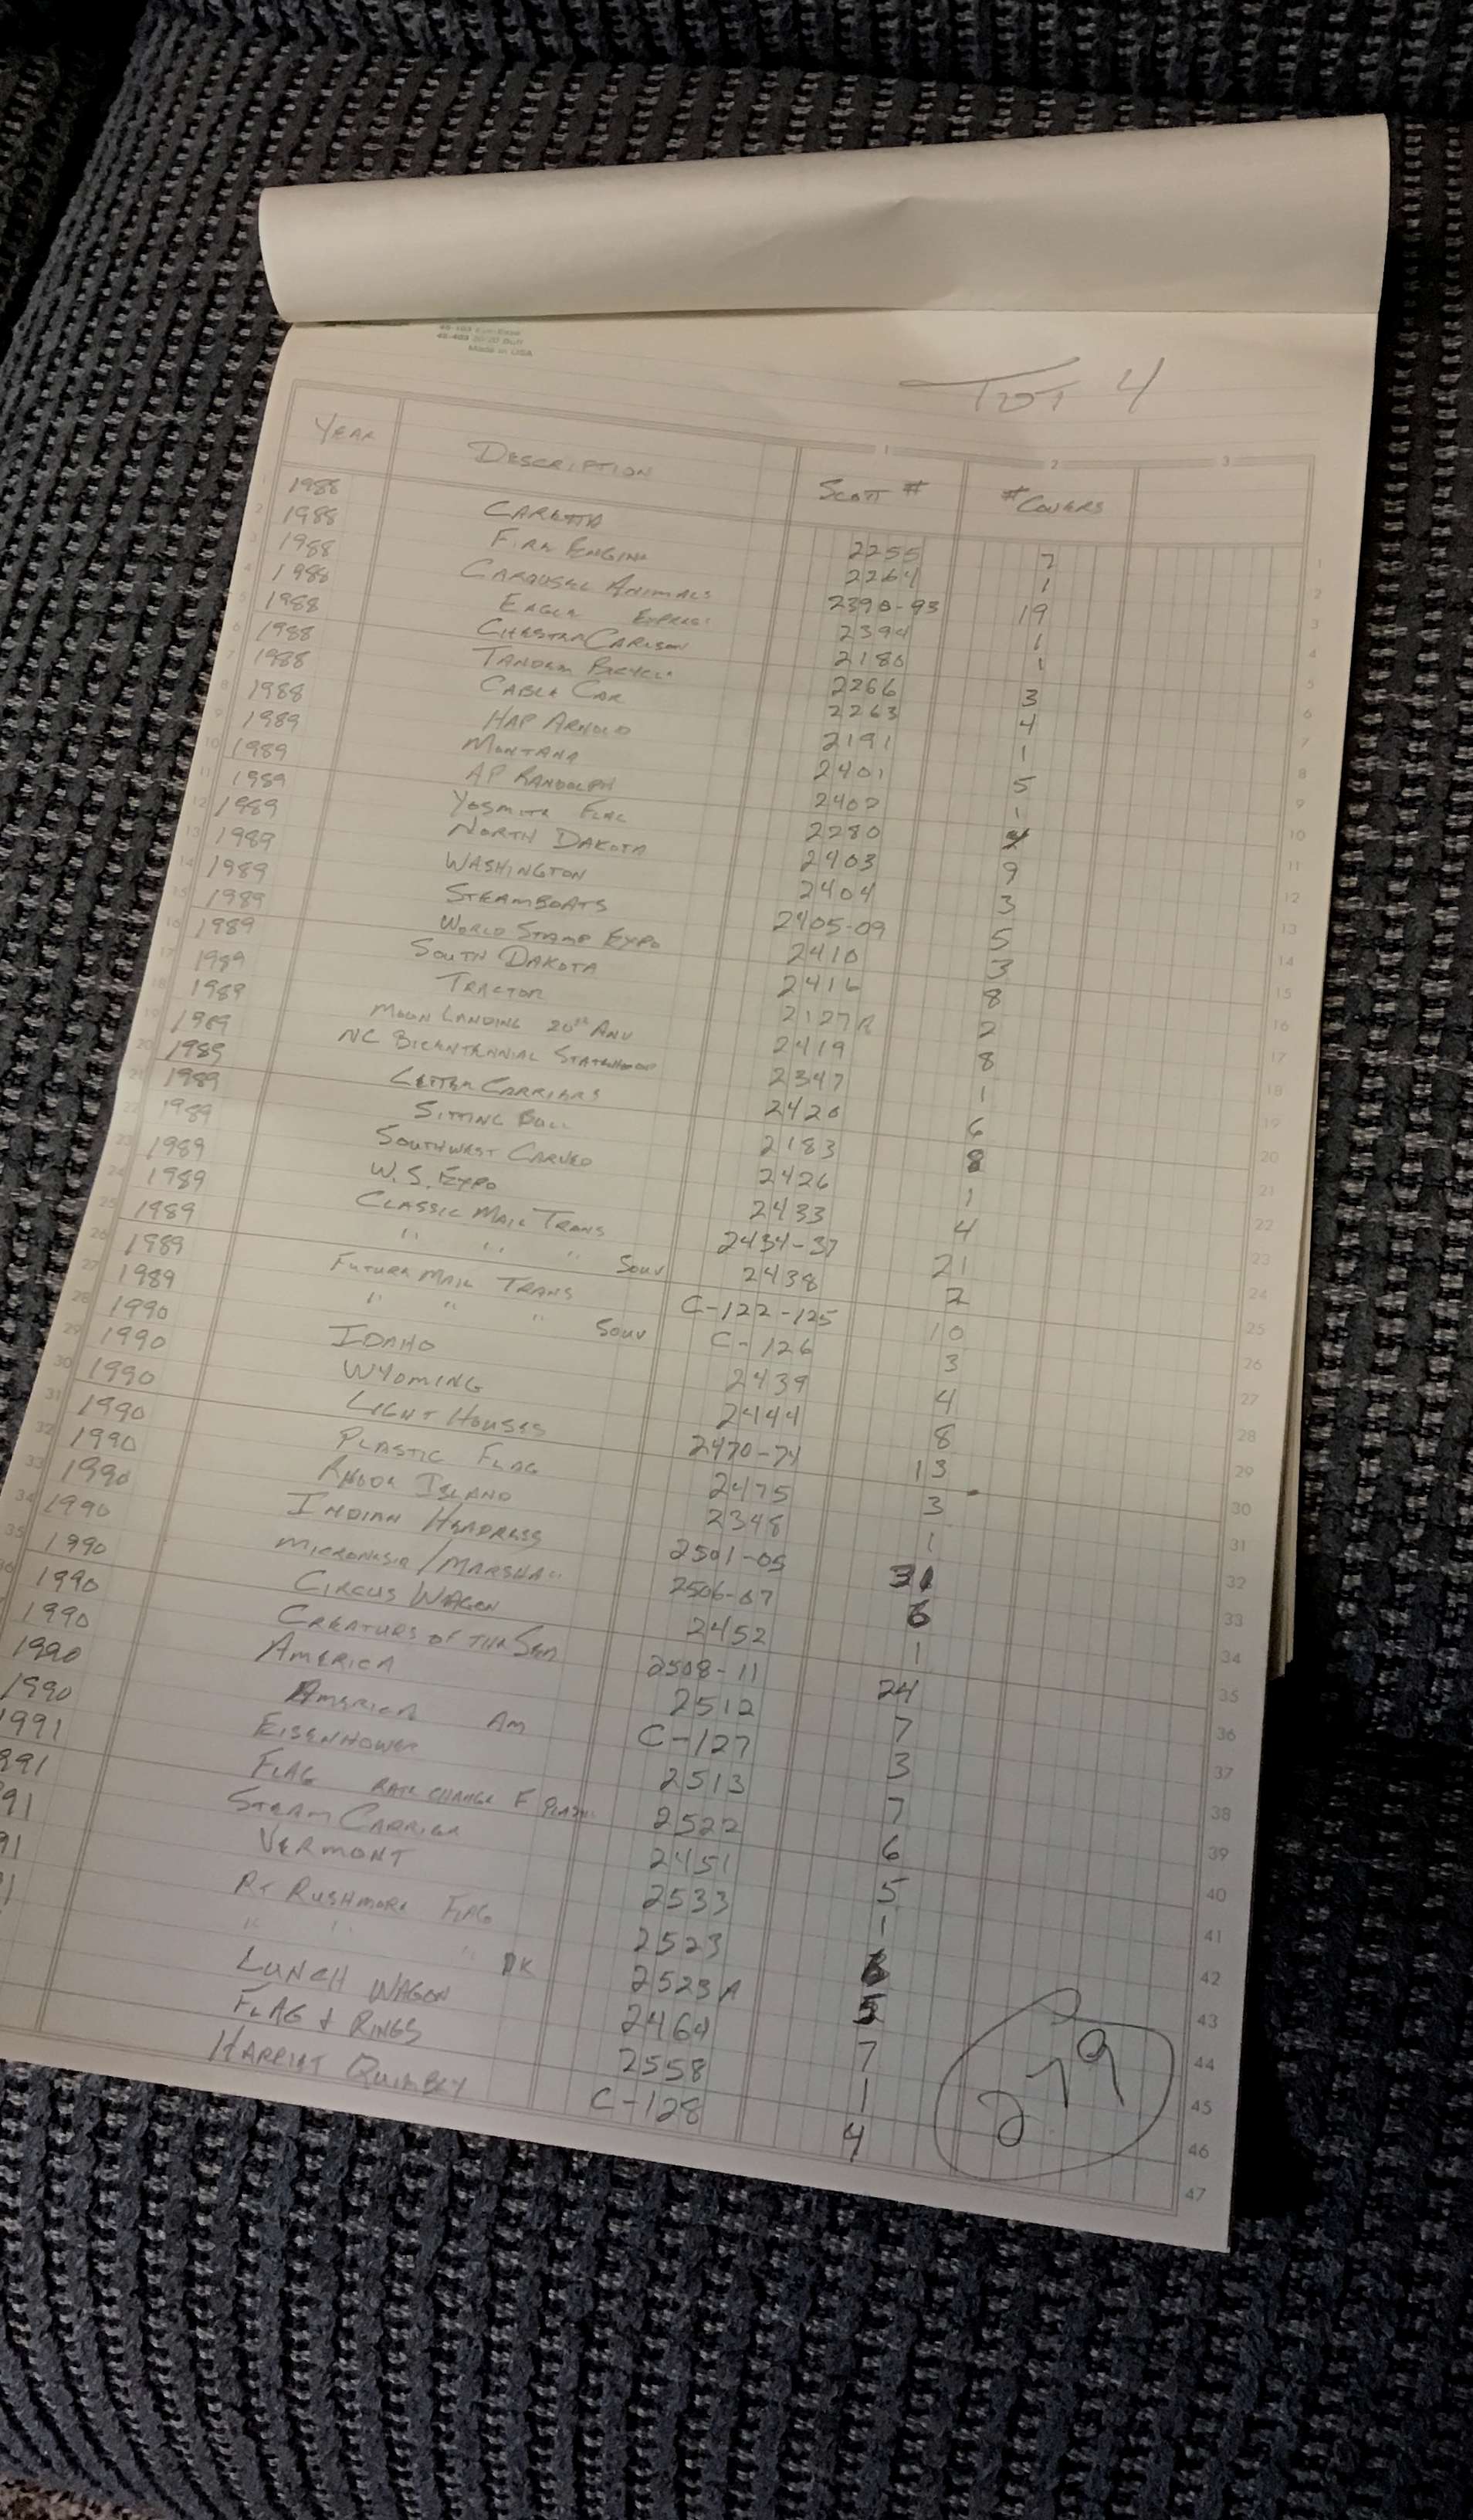 TOT 4
YEAR DESCRIPTION SCOTT # # COVERS
1 2 3
1 1988 CARETTA 2255 7 1
2 1988 FIRE ENGINE 2264 1 2
3 1988 CAROUSEL ANIMALS 2390-93 19 3
4 1988 EAGLE EXPRESS 2394 1 4
5 1988 CHESTER CARLSON 2180 1 5
6 1988 TANDEM BICYCLE 2266 3 6
7 1988 CABLE CAR 2263 4 7
8 1988 HAP ARNOLD 2191 1 8
9 1989 MONTANA 2401 5 9
10 1989 AP RANDOLPH 2402 1 10
11 1989 YOSMITE FLAG 2280 11
12 1989 NORTH DAKOTA 2403 9 12
13 1989 WASHINGTON 2404 3 13
14 1989 STEAMBOATS 2405-09 5 14
15 1989 WORLD STAMP EXPO 2410 3 15
16 1989 SOUTH DAKOTA 2416 8 16
17 1989 TRACTOR 2127A 2 17
18 1989 MOON LANDING 20TH ANV 2419 8 18
19 1989 NC BICENTENNIAL STATEHOOD 2347 1 19
20 1989 LETTER CARRIERS 2420 6 20
21 1989 SITTING BULL 2183 8 21
22 1989 SOUTHWEST CARVED 2426 1 22
23 1989 W.S. EXPO 2433 4 23
24 1989 CLASSIC MAIL TRANS 2434-37 21 24
25 1989 " " " SOUV 2438 2 25
26 1989 FUTURE MAIL TRANS C-122-125 10 26
27 1989 " " " SOUV C-126 3 27
28 1990 IDAHO 2439 4 28
29 1990 WYOMING 2444 8 29
30 1990 LIGHT HOUSES 2470-74 13 30
31 1990 PLASTIC FLAG 2475 3 31
32 1990 RHODE ISLAND 2348 1 32
33 1990 INDIAN HEADRESS 2501-05 31 33
34 1990 MICRONESIA/MARSHALL 2506-07 6 34
35 1990 CIRCUS WAGON 2452 1 35
36 1990 CREATURS OF THE SEA 2508-11 24 36
1990 AMERICA 2512 7 37
1990 AMERICA AM C-127 3 38
1990 EISENHOWER 2513 7 39
1991 FLAG RATE CHANGE F 2522 6 40
991 STEAM CARRIER 2451 5 41
91 VERMONT 2533 1 42
91 RUSHMORE FLAG 2523 43
1 " " " 2523A 5 44
LUNCH WAGON 2464 7 45
FLAG & RINGS 2558 1 46
HARRIET QUIMBEY C-128 4 47
279